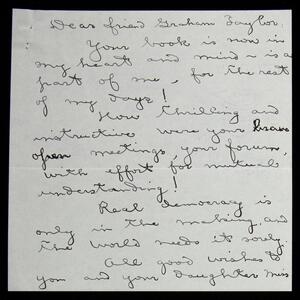 Dear friend Graham Taylor:
Your book is now in
my heart and mind - is a
part of me, for the rest
of my days!
How thrilling and
instructive were your brave
open meetings, your forum,
with effort for mutual
understanding!
Real democracy is
only in the making, and
the world needs it sorely.
All good wishes to
you and your daughter Miss